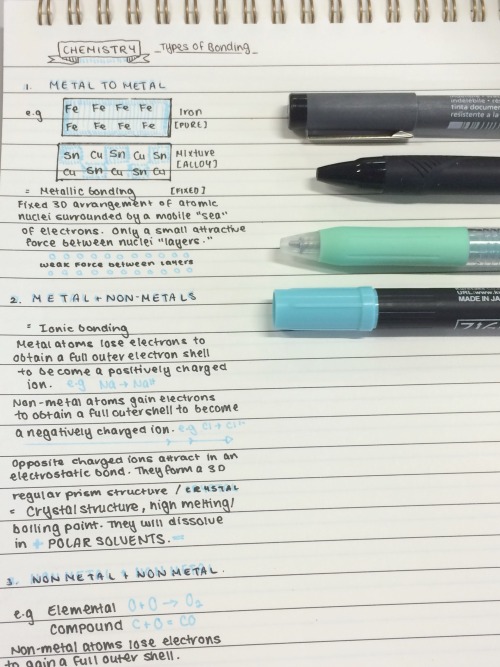 CHEMISTRY Types of Bonding
1. METAL TO METAL
e.g Fe Fe Fe Fe Iron
Fe Fe Fe Fe [PURE]
Sn Cu Sn Cu Sn Mixture
Cu Sn Cu Sn Cu [ALLOY]
= Metallic bonding [FIXED]
Fixed 3D arrangement of atomic
nuclei surrounded by a mobile "sea"
of electrons. Only a small attractive
force between nuclei "layers."
weak force between layers
2. METAL + NON-METALS
= Ionic bonding
Metal atoms lose electrons to
obtain a full outer electron shell
to become a positively charged
ion. e.g Na → Na+
Non-metal atoms gain electrons
to obtain a full outer shell to become
a negatively charged ion. e.g Cl + Cl
Opposite charged ions attract in an
electrostatic bond. They form a 3D
regular prism structure / CRYSTAL
= Crystal structure, high melting/
boiling point. They will dissolve
in + POLAR SOLVENTS. =
3. NON METAL + NON METAL.
e.g Elemental O+O → O2
Compound C+O = CO
Non-metal atoms lose electrons
to gain a full outer shell.
indelebile
tinta documen
resistente a la
URL:www.ku
MADE IN JA
ZIG